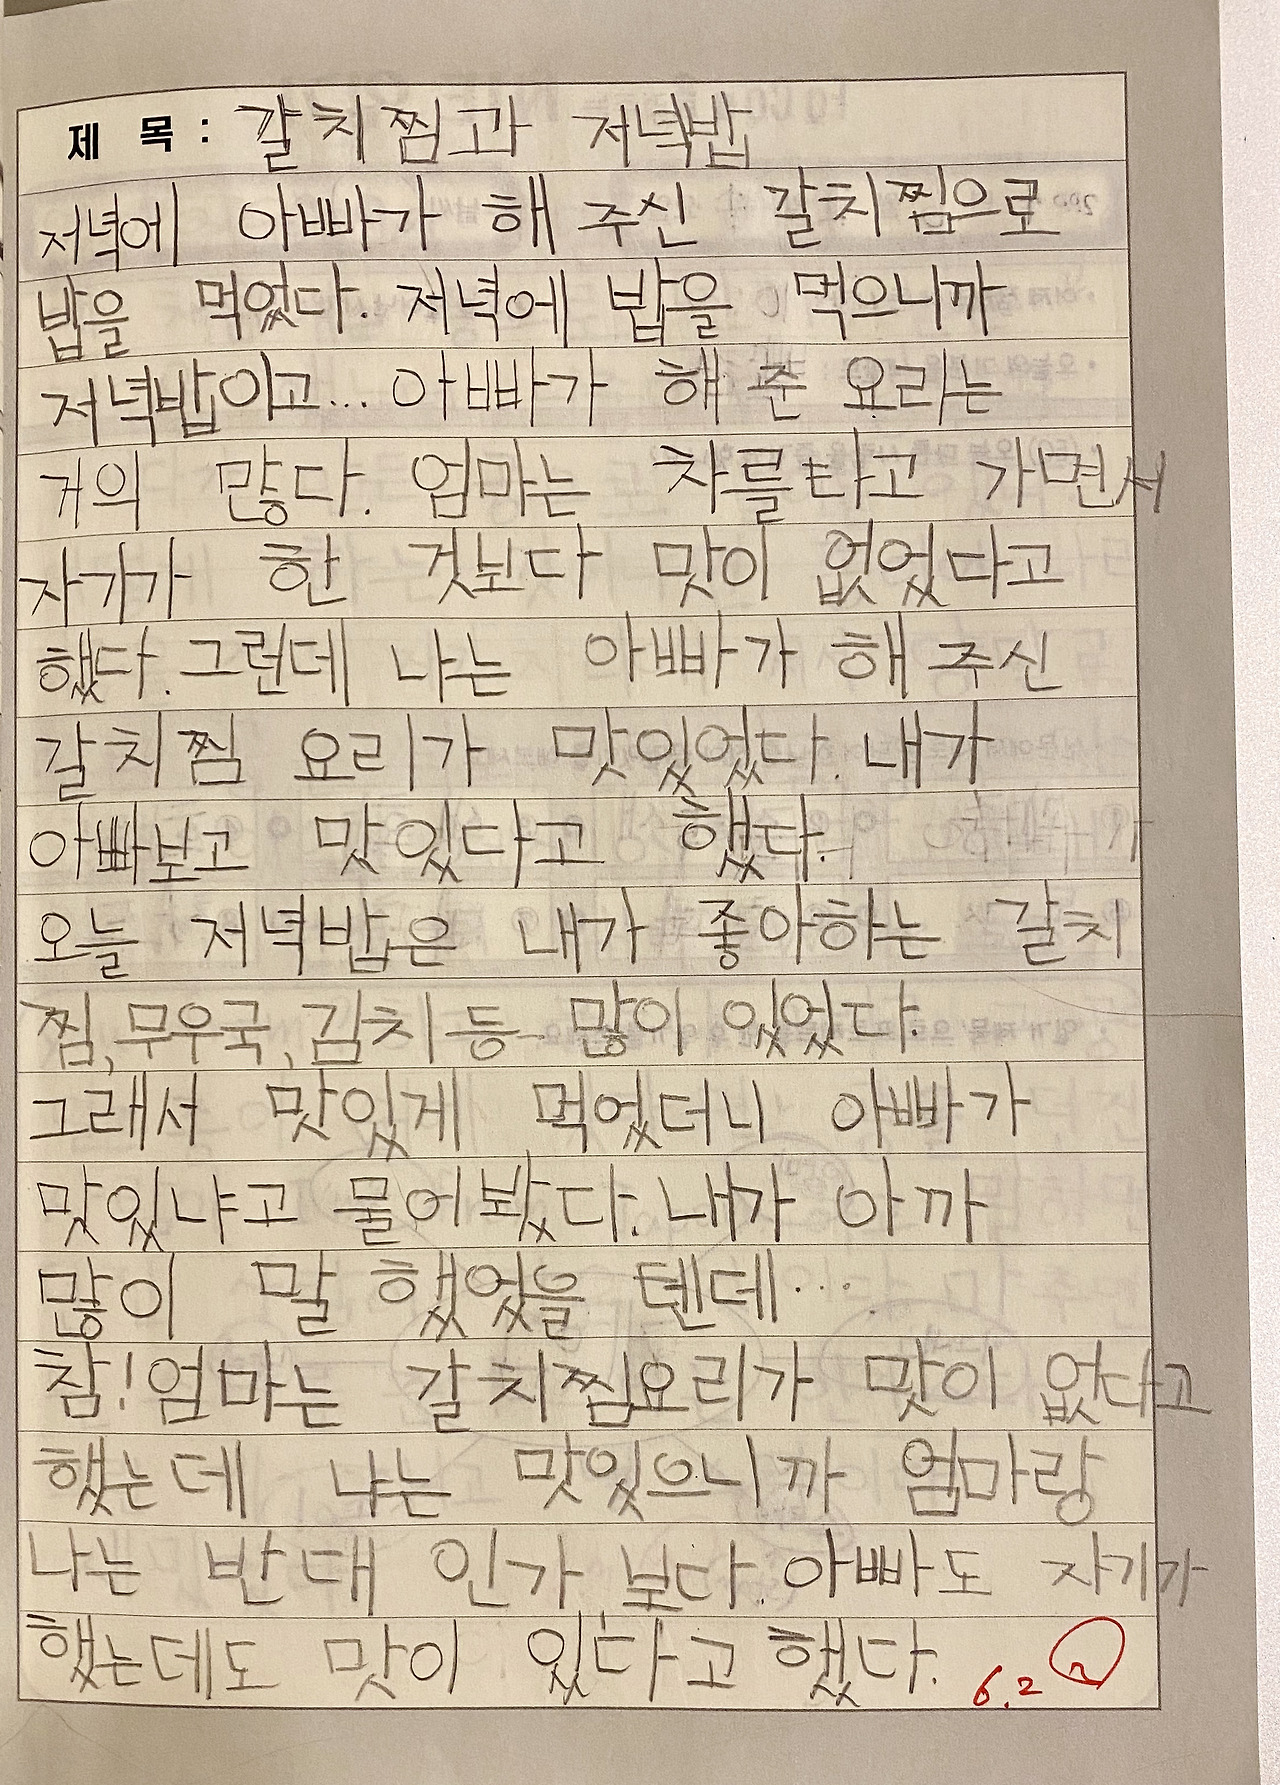 제 목 : 갈치찜과 저녁밥
저녁에 아빠가 해 주신 갈치찜으로
밥을 먹었다. 저녁에 밥을 먹으니까
저녁밥이고... 아빠가 해 준 요리는
거의 많다. 엄마는 차를타고 가면서
자기가 한 것보다 맛이 없었다고
했다. 그런데 나는 아빠가 해 주신
갈치찜 요리가 맛있었다. 내가
아빠보고 맛있다고 했다.
오늘 저녁밥은 내가 좋아하는 갈치
찜, 무우국, 김치 등 많이 있었다.
그래서 맛있게 먹었더니 아빠가
맛있냐고 물어봤다. 내가 아까
많이 말 했었을 텐데...
참! 엄마는 갈치찜요리가 맛이 없다고
했는데 나는 맛있으니까 엄마랑
나는 반대 인가 보다. 아빠도 자기가
했는데도 맛이 있다고 했다.
6.2